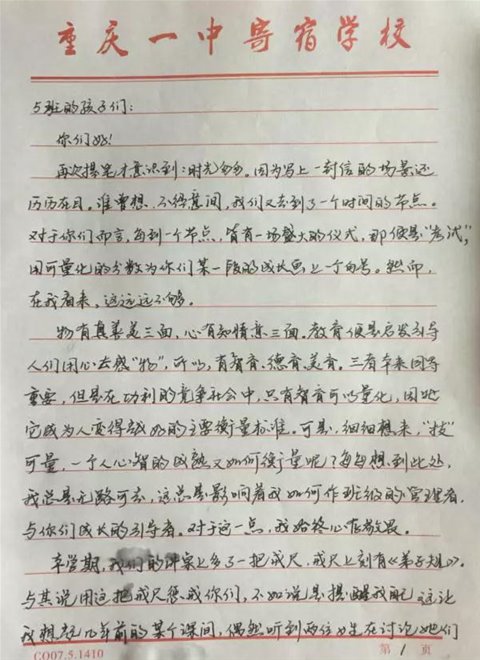 重庆一中寄宿学校
5班的孩子们:
你们好!
再次提笔才意识到:时光匆匆。因为写上一封信的场景还
历历在目。谁曾想,不经意间,我们又去到了一个时间的节点。
对于你们而言,每到一个节点,皆有一场盛大的仪式,那便是"考试",
用可量化的分数为你们某一段的成长画上一个句号。然而,
在我看来,这远远不够。
物有真善美三面,心有知情意三面。教育便是启发引导
人们用心去感"物",所以,有智育、德育、美育。三者本来同等
重要,但是在功利的竞争社会中,只有智育可以量化,因此
它成为人变得越好的主要衡量标准。可是,细细想来,"技"
可量,一个人心智的成熟又如何衡量呢?每每想到此处,
我总是无路可去,这总是影响着我如何作班级的管理者,
与你们成长的引导者。对于这一点,我始终心存敬畏。
本学期,我们的讲桌上多了一把戒尺,戒尺上刻有《弟子规》。
与其说用这把戒尺惩戒你们,不如说是提醒我自己。这让
我想起几年前的某个课间,偶然听到两位女生在讨论她们
CO07.5.1410
第 1 页